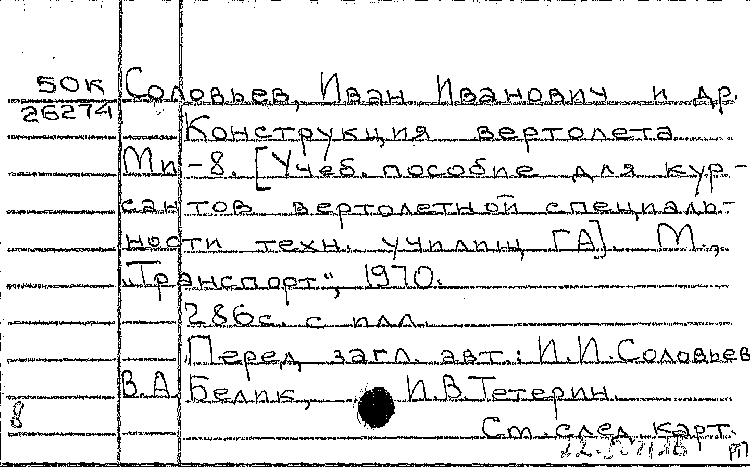 50К Соловьев, Иван Иванович и др.
26274
Конструкция вертолета
Ми-8. [Учеб. пособие для кур-
сантов вертолетной специаль-
ности техн. училищ ГА]. М.,
„Транспорт", 1970.
286с. с илл.
Перед загл. авт.: И.И.Соловьев
В.А. Белик, И.В.Тетерин.
8
См.след.карт.